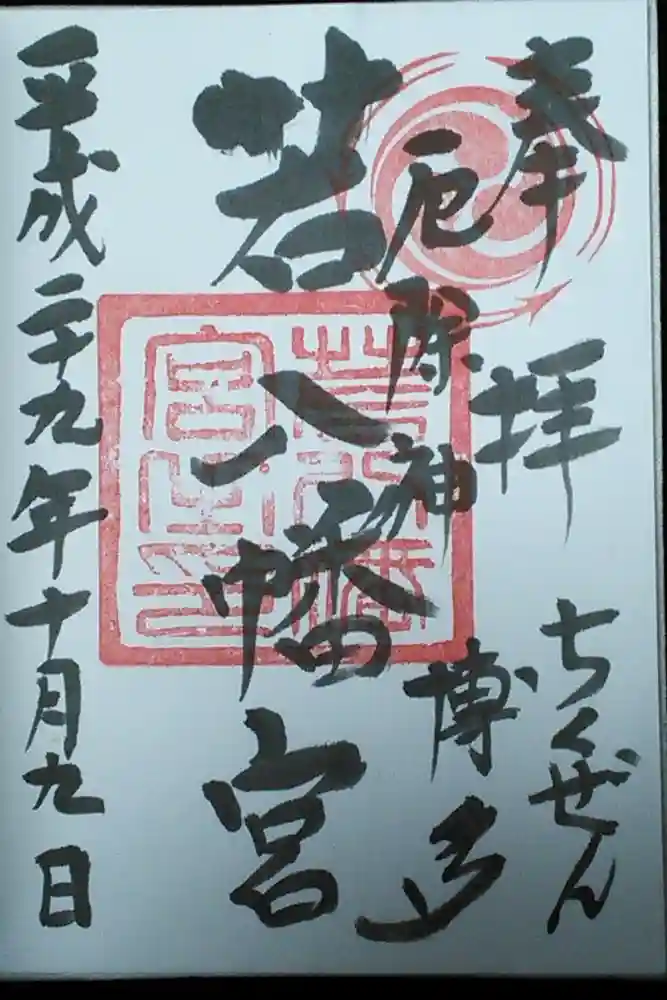 奉拝 ちくぜん
厄除神 博多
若八幡宮
平成二十九年十月九日